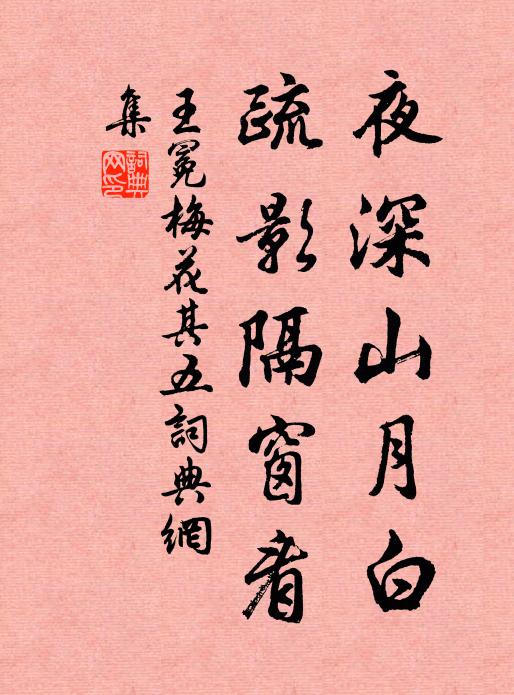 夜深山月白
疏影隔窗看
王冕梅花其五詞典網
集
詞典網印